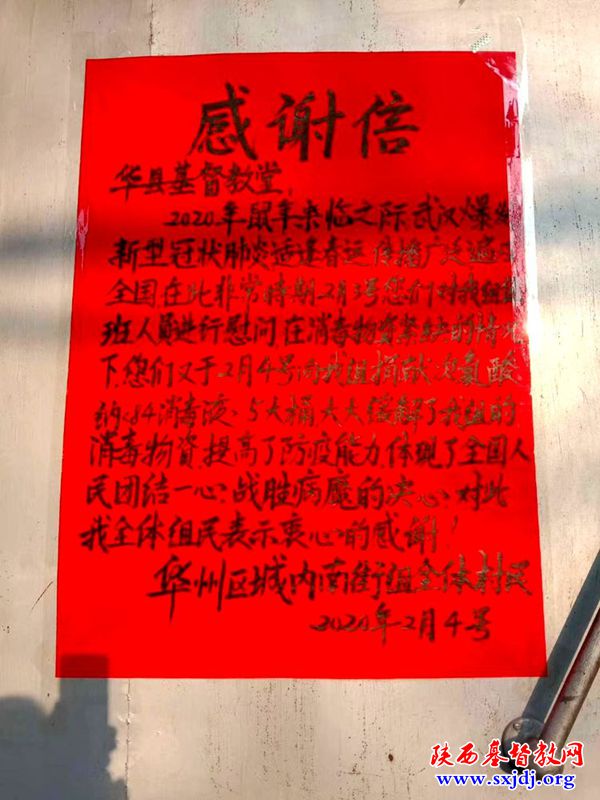 感谢信
华县基督教堂:
2020年鼠年来临之际武汉爆发
新型冠状肺炎适逢春运传播广泛遍及
全国在此非常时期2月3号您们对我组值
班人员进行慰问在消毒物资紧缺的情况
下,您们又于2月4号向我组捐献次氯酸
纳.84消毒液.5大桶大大缓解了我组的
消毒物资,提高了防疫能力,体现了全国人
民团结一心,战胜病魔的决心,对此
我全体组民表示衷心的感谢!
华州区城内南街组全体村民
2020年2月4号
陕西基督教网
www.sxjdj.org